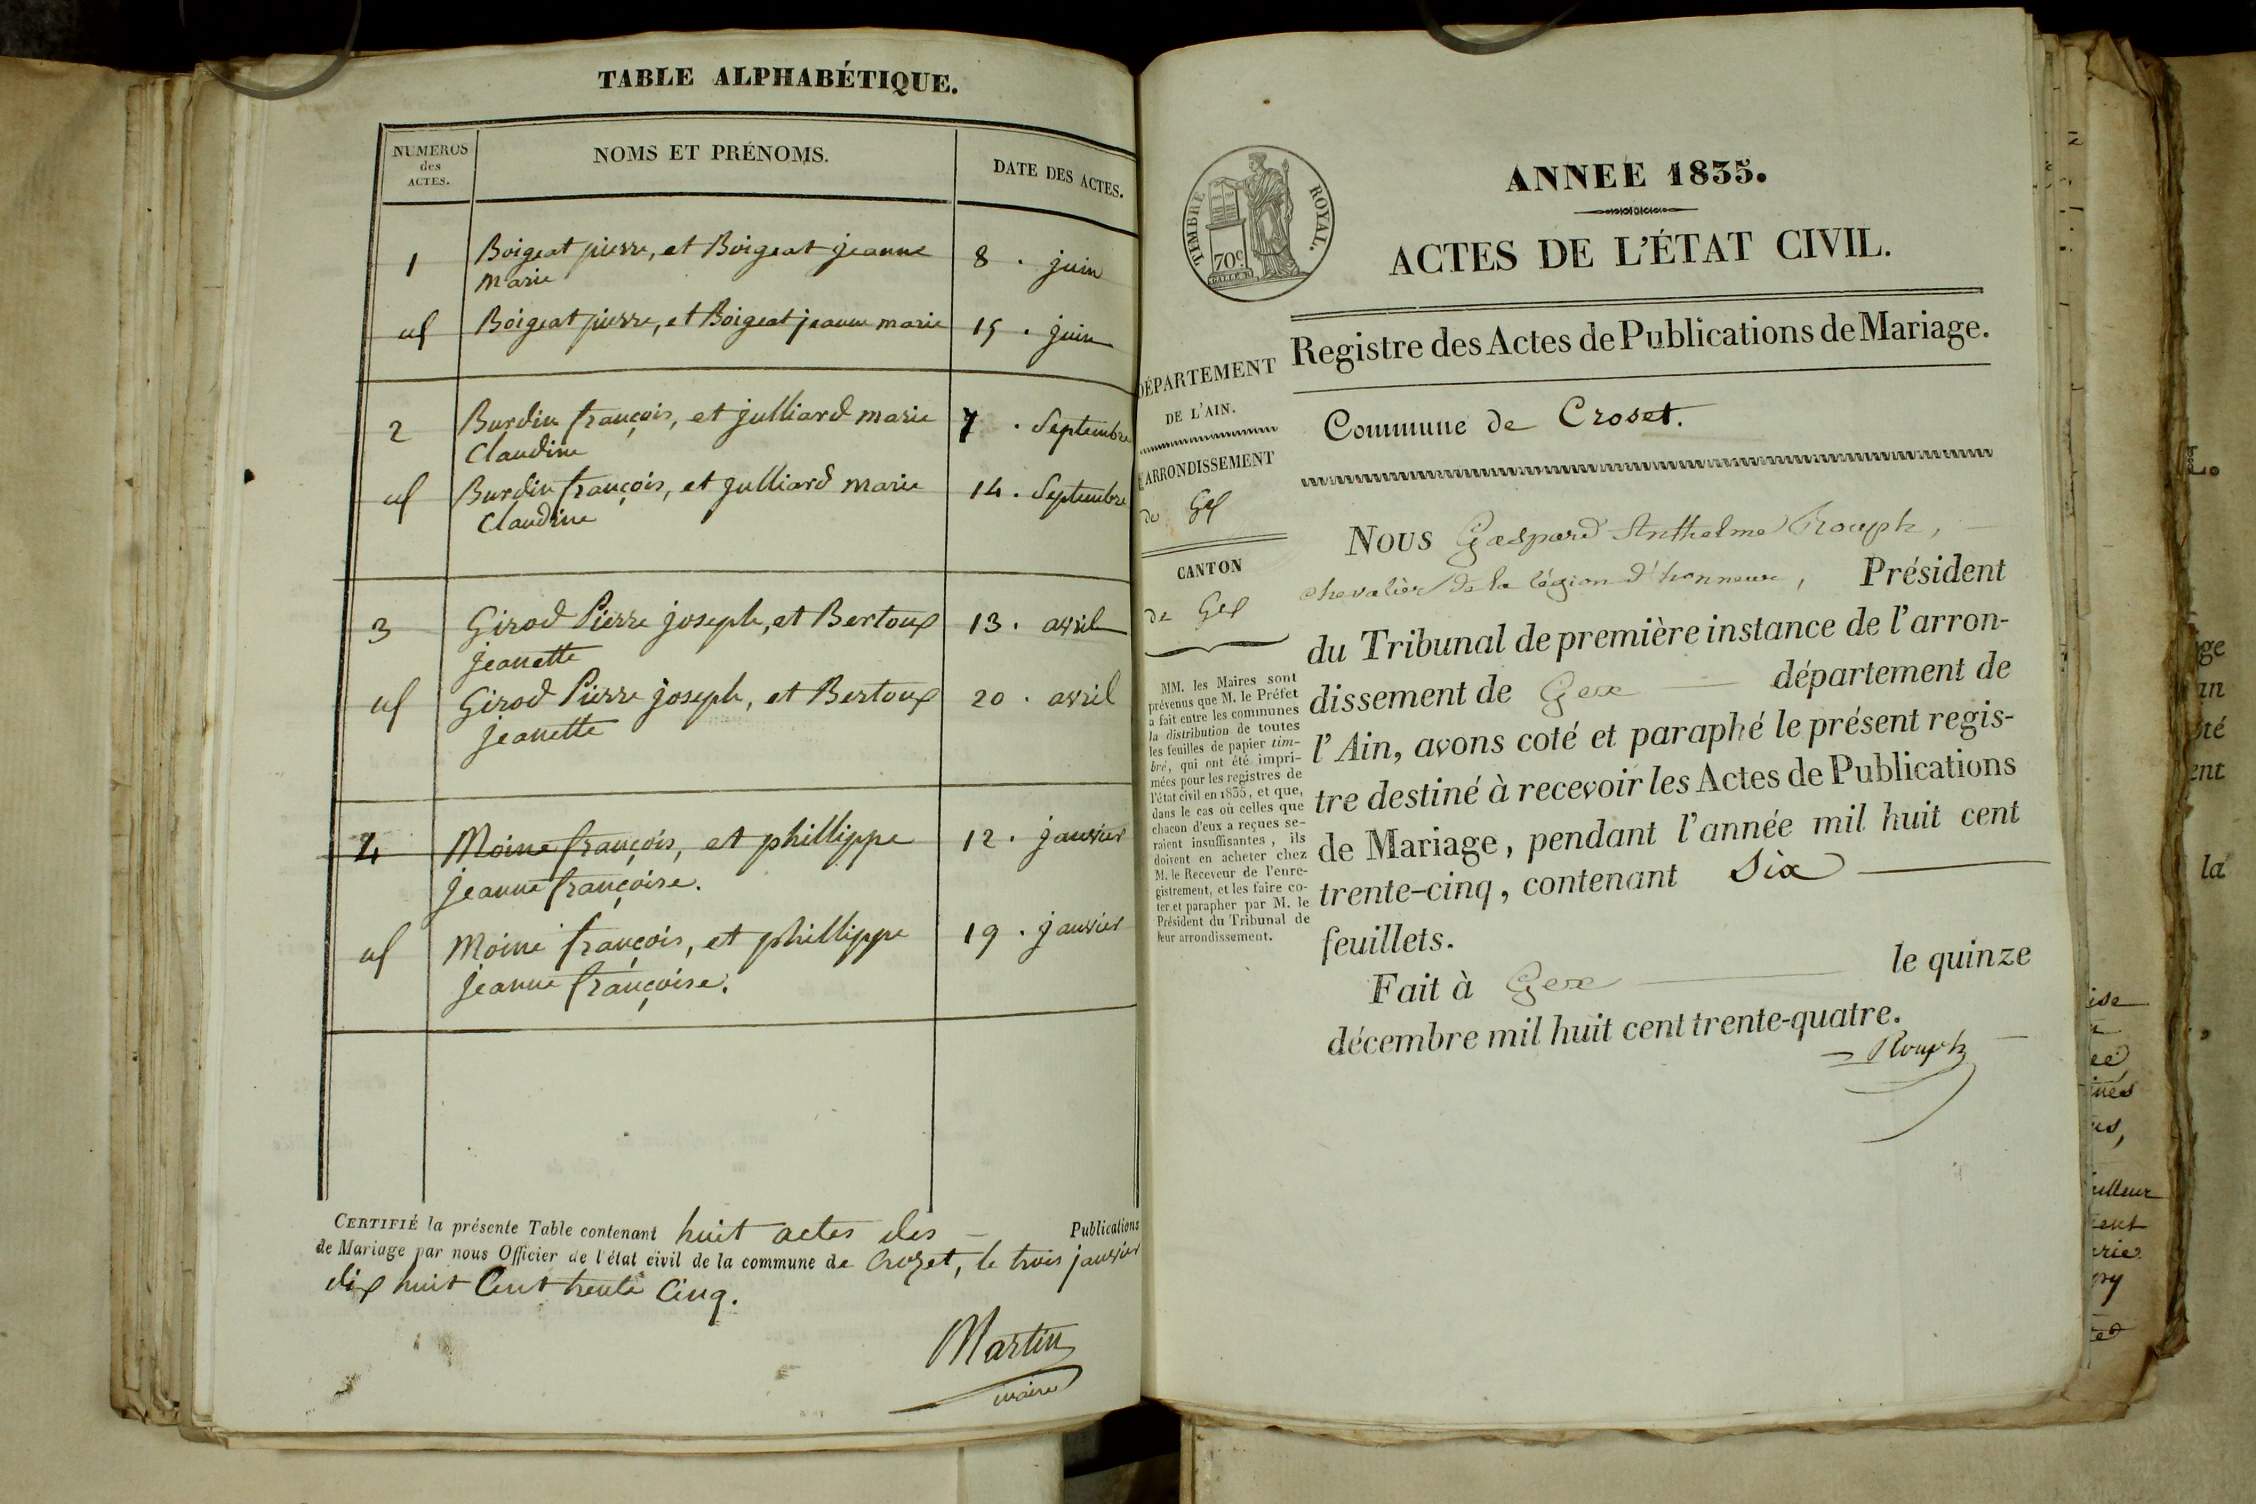 TABLE ALPHABÉTIQUE.
NUMEROS
des
ACTES.
NOMS ET PRÉNOMS.
DATE DES ACTES.
1 Boigeat pierre, et Boigeat jeanne 8 . juin
marie
id Boigeat pierre, et Boigeat jeanne marie 15 . juin
2 Burdin françois, et julliard marie 7 . Septembre
Claudine
id Burdin françois, et julliard marie 14 . Septembre
Claudine
3 Girod Pierre joseph, et Bertoux 13 . avril
jeanette
id Girod Pierre joseph, et Bertoux 20 . avril
jeanette
4 Moine françois, et phillippe 12 . janvier
jeanne françoise.
id Moine françois, et phillippe 19 . janvier
jeanne françoise.
CERTIFIÉ la présente Table contenant huit actes des Publications
de Mariage par nous Officier de l'état civil de la commune de Crozet, le trois janvier
dix huit Cent trente Cinq.
Martin
maire
TIMBRE ROYAL.
70c
ANNÉE 1835.
ACTES DE L'ÉTAT CIVIL.
Registre des Actes de Publications de Mariage.
DÉPARTEMENT
DE L'AIN.
ARRONDISSEMENT
de Gex
CANTON
de Gex
MM. les Maires sont
prévenus que M. le Préfet
a fait entre les communes
la distribution de toutes
les feuilles de papier tim-
bré, qui ont été impri-
mées pour les registres de
l'état civil en 1835, et que,
dans le cas où celles que
chacun d'eux a reçues se-
raient insuffisantes, ils
doivent en acheter chez
M. le Receveur de l'enre-
gistrement, et les faire co-
ter et parapher par M. le
Président du Tribunal de
leur arrondissement.
Commune de Croset.
Nous Gaspard Anthelme Rouph,
chevalier de la légion d'honneur, Président
du Tribunal de première instance de l'arron-
dissement de Gex département de
l'Ain, avons coté et paraphé le présent regis-
tre destiné à recevoir les Actes de Publications
de Mariage, pendant l'année mil huit cent
trente-cinq, contenant Six
feuillets.
Fait à Gex le quinze
décembre mil huit cent trente-quatre.
Rouph